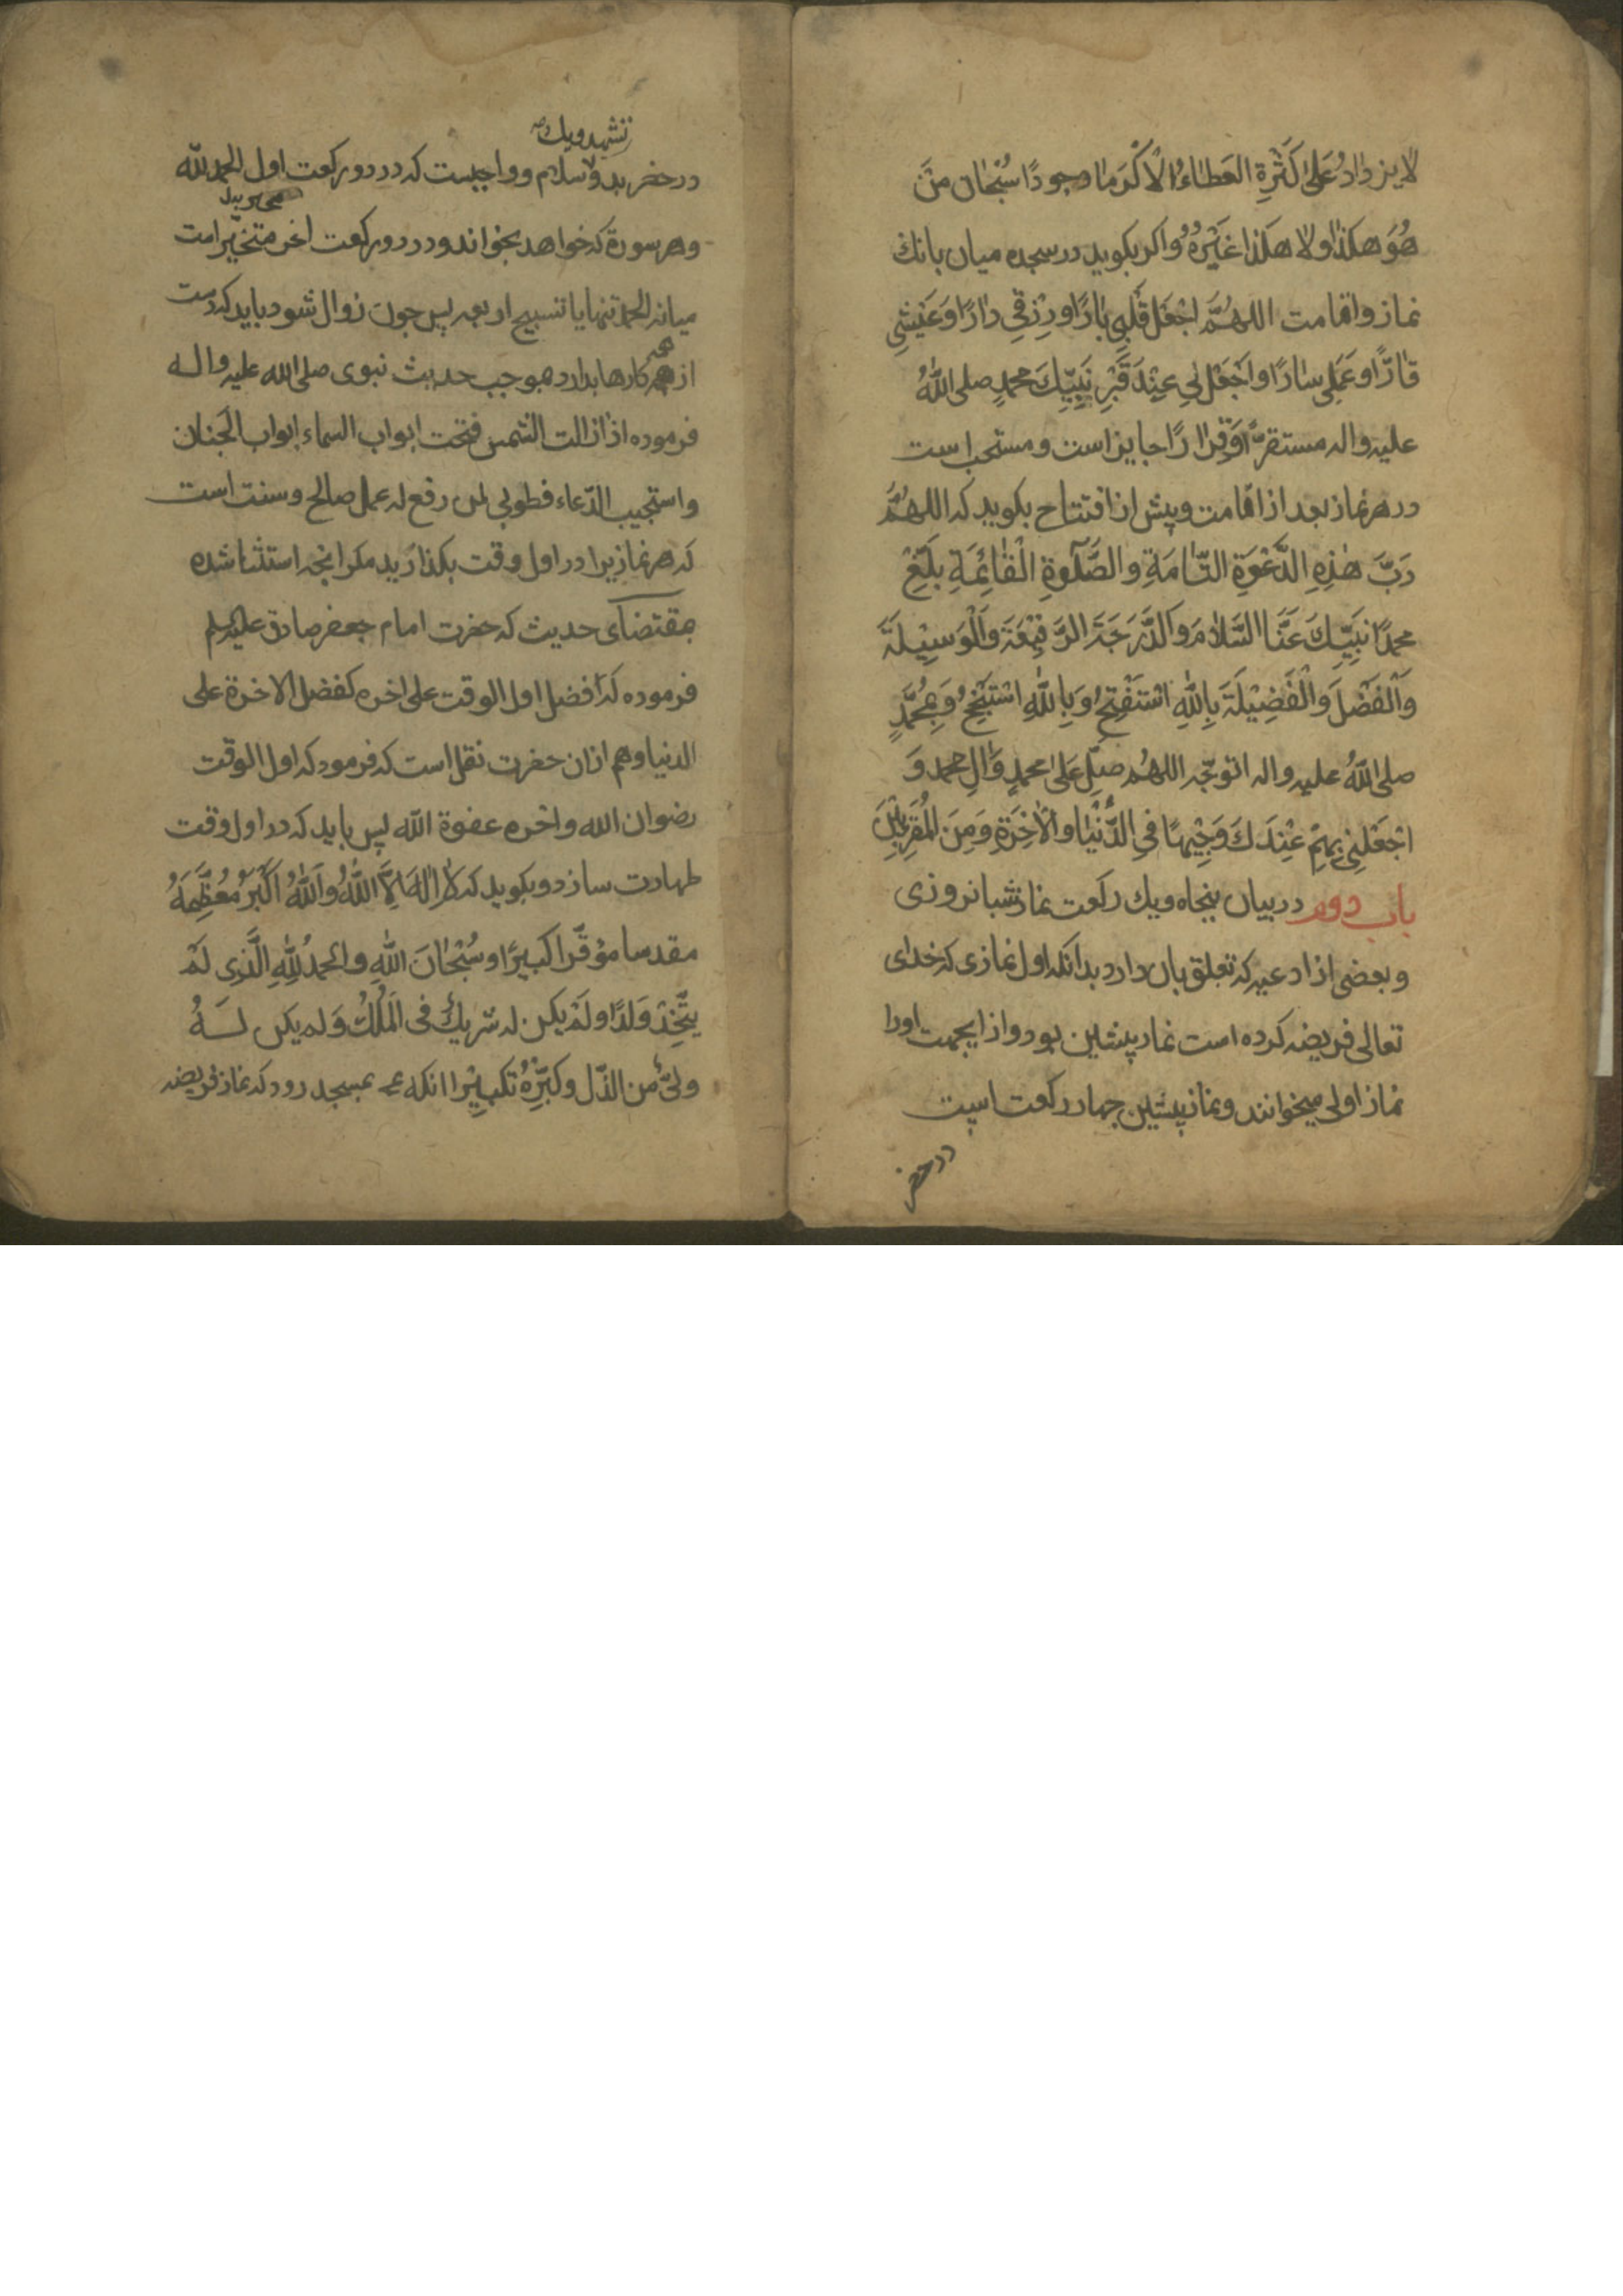 لا يزدادُ عَلىٰ كَثْرَةِ العَطاءُ الْاكْرَمًا وجودًا سُبْحان مَنْ
هُوَ هكذا ولا هكَذا غَيْرُهُ واكر بكويد در سجده ميان بانك
نماز واقامت اللهُمَّ اجْعَل قَلْبي بٰارًا ورِزْقي دٰارًا وَعَيْشي
قٰارًّا وعَمَلي سٰارًا واجْعَلْ لي عِنْدَ قَبْرِ نَبِيِّكَ محمدٍ صلى اللّٰهُ
عليه واله مستقرًّا وَقرارًا جايز است ومستحب است
در هر نماز بعد از اقامت وپيش از افتتاح بكويد كه اللهُمَّ
رَبَّ هٰذِهِ الدَّعْوَةِ التّامَةِ والصَّلٰوةِ الْقٰائِمَةِ بَلِّغْ
محمدًا نَبيِّكَ عَنَّا السَّلامَ وَالدَّرَجَةَ الرَّفيْعَةَ وَالْوَسيْلَةَ
وَالْفَضْلَ وَالْفَضِيْلَةَ بِاللّٰهِ اسْتَفْتِحُ وَبِاللّٰهِ اسْتَنْجِحُ وَبِمُحَمَّدٍ
صلى اللّٰهُ عليه واله اتوجّه اللهُم صَلِّ عَلىٰ محمدٍ وَالِ محمد وَ
اجْعَلْني بِهِمْ عِنْدَكَ وَجِيْهًا فِي الدُّنْيٰا والاٰخِرَةِ وَمِنَ المُقَرِبيْنَ
باب دوم در بيان پنجاه ويك ركعت نماز شبانروزى
وبعضى از ادعيه كه تعلق بان دارد بدانكه اول نمازى كه خداى
تعالى فريضه كرده است نماز پيشين بود واز ايجهت اورا
نماز اولى ميخوانند ونماز پيشين چهار ركعت است
در حضر
تشهد ويك
در حضر بدو سلام وواجبست كه در دو ركعت اول الحمد لله
وهر سورة كه خواهد بخواند ودر دو ركعت اخر متخيّر است
ميانه الحمد تنها يا تسبيح اربعه پس چون زوال شود بايد كه دست
از همه كارها بدارد بموجب حديث نبوى صلى الله عليه واله
فرموده اذا زالت الشمس فتحت ابواب السماء ابواب الجنان
واستجيب الدّعاء فطوبى لمن رفع له عمل صالح وسنت است
كه هر نمازيرا در اول وقت بكذاريد مكر انچه استثنا شده
بمقتضاى حديث كه حضرت امام جعفر صادق عليه السلم
فرموده كه افضل اول الوقت على اخره كفضل الاخرة على
الدنيا وهم از ان حضرت نقل است كه فرمود كه اول الوقت
رضوان الله واخره عفوة اللّه پس بايد كه در اول وقت
طهارت سازد وبكويد كه لا اِلٰهَ اِلَّا اللّٰهُ وَاللّٰهُ اَكْبَرُ مُعَظِّمَهُ
مقدسا مؤقّرا كبيرًا وسُبْحٰانَ اللّٰهِ والحمدُ لِلّٰهِ الَّذى لَمْ
يتَّخِذْ وَلدًا ولَمْ يكن له شريكٌ فى الْمُلْكْ وَلم يكن لَهُ
وليٌّ من الذّل وكبّرْهُ تكبيْرا انكه بمسجد رود كه نماز فريضه